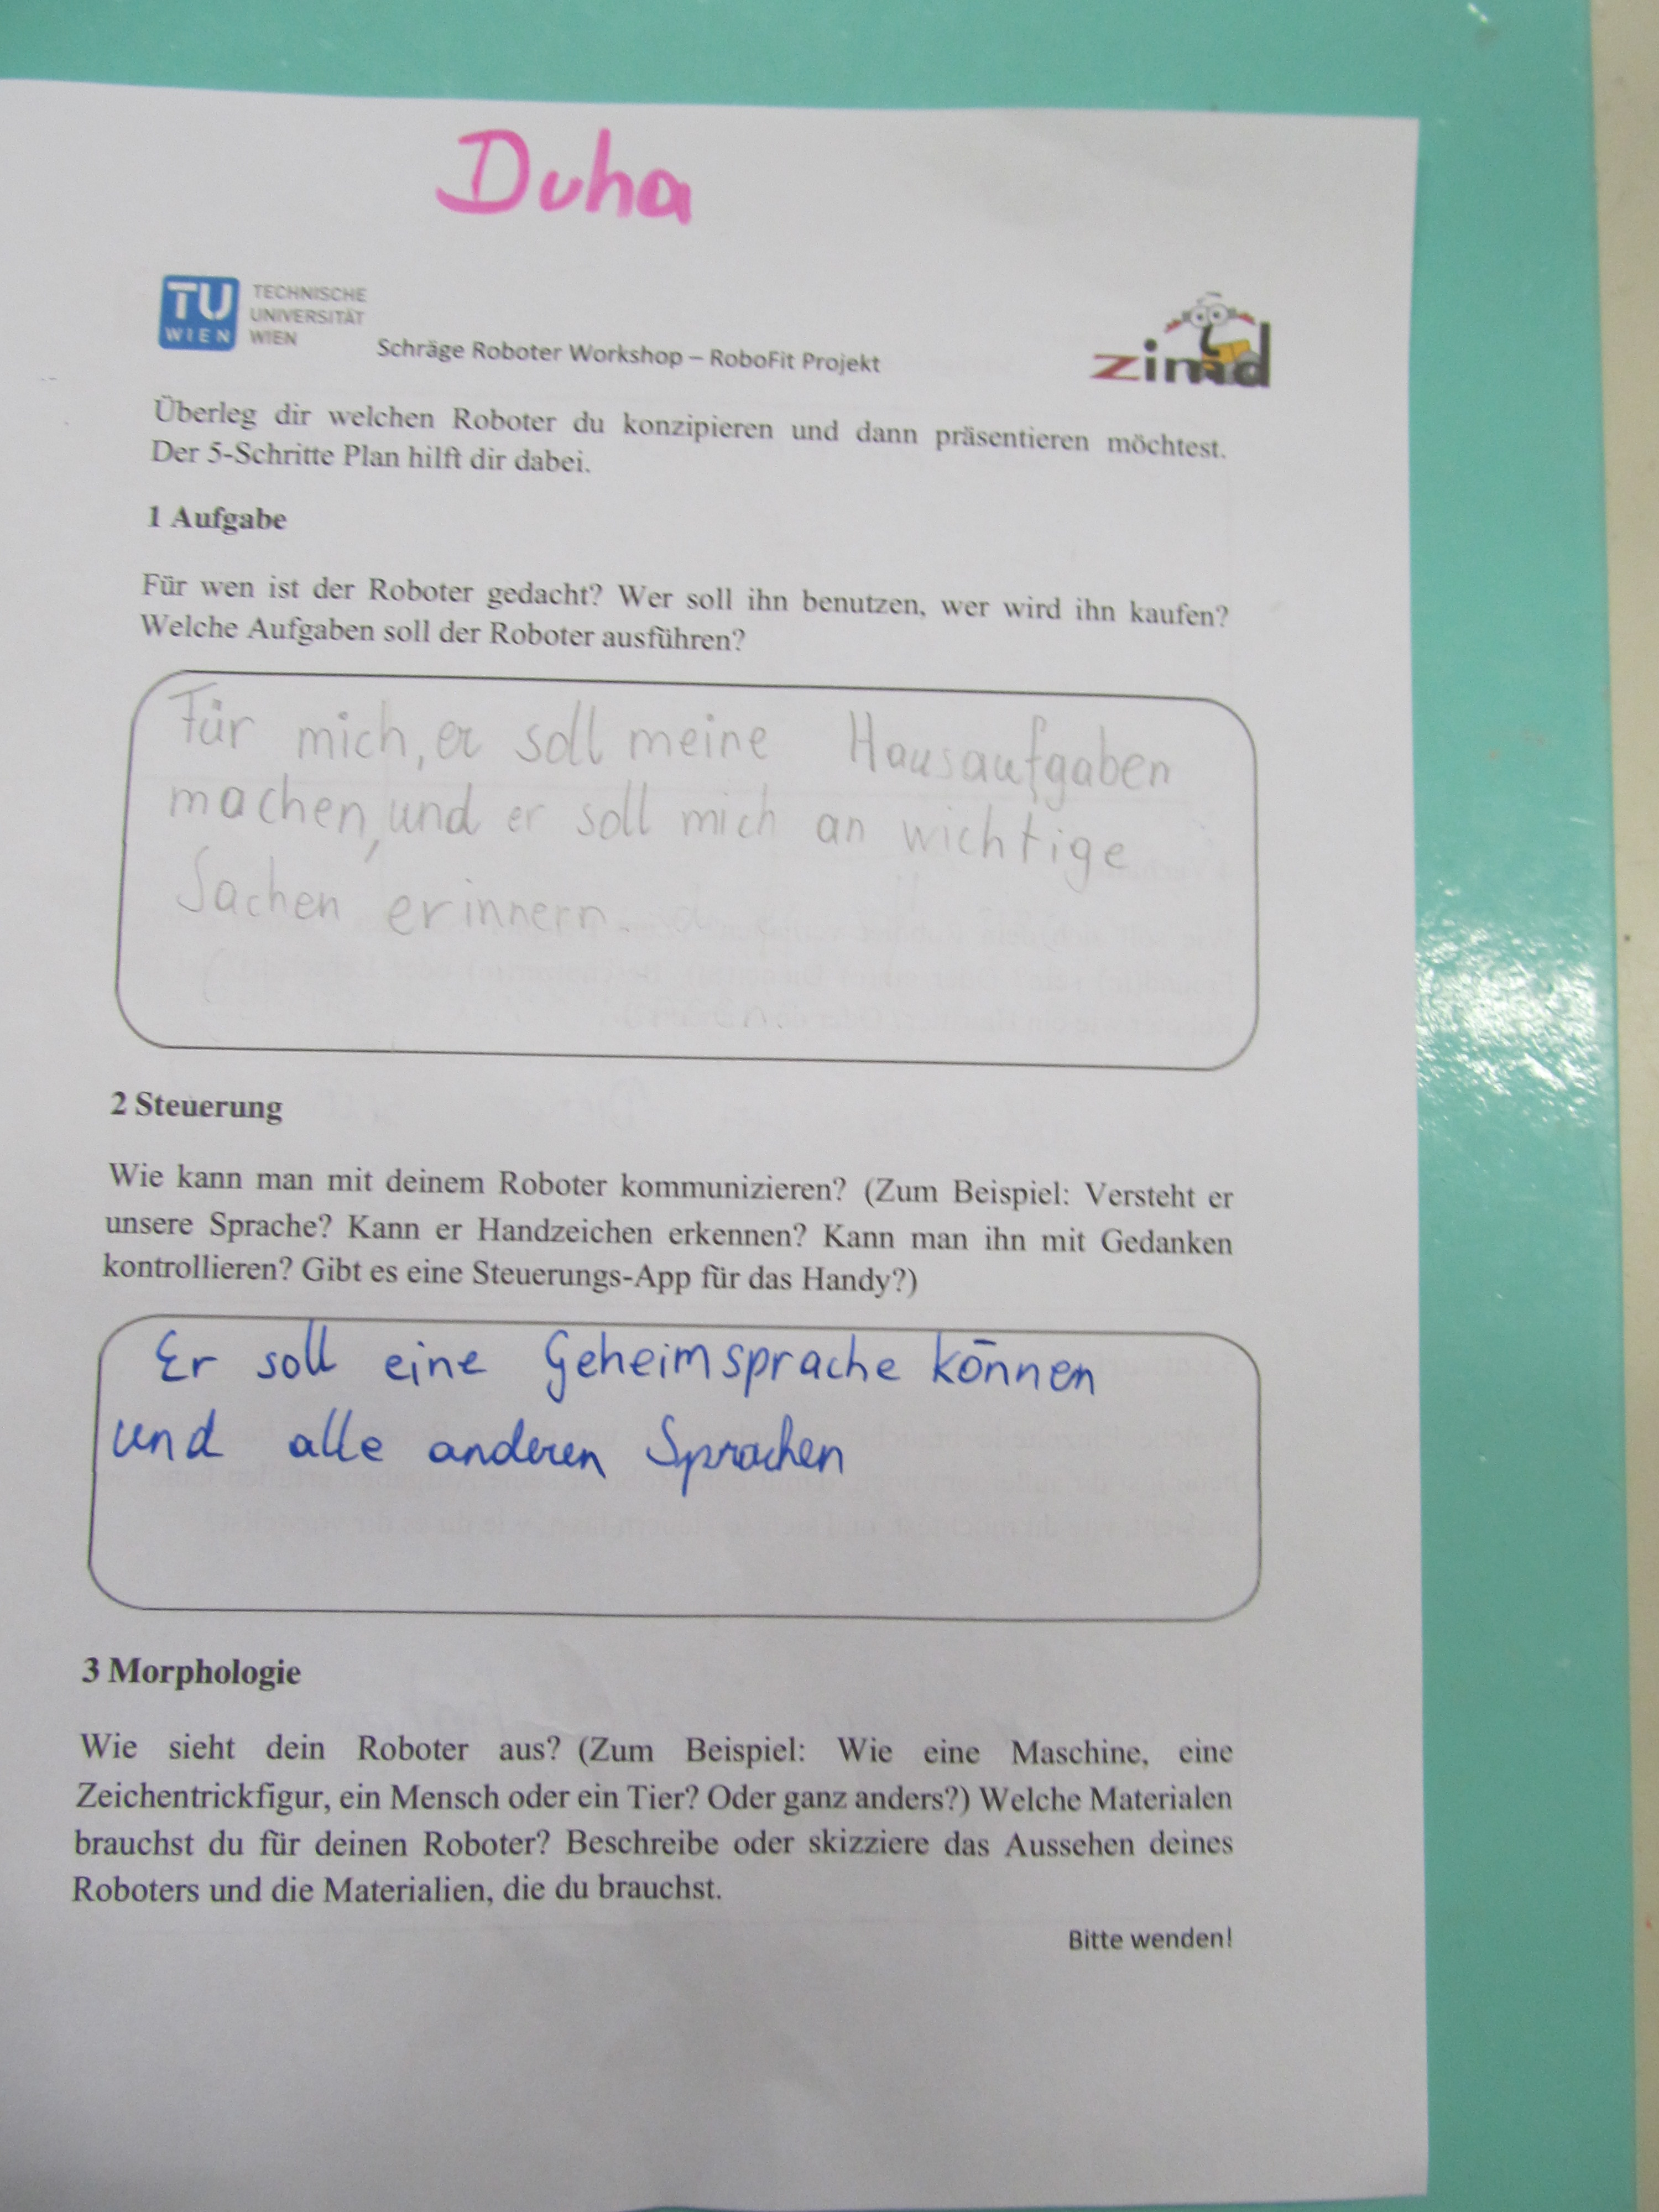 Duha
TU
WIEN
TECHNISCHE
UNIVERSITÄT
WIEN
Schräge Roboter Workshop – RoboFit Projekt
zimd
Überleg dir welchen Roboter du konzipieren und dann präsentieren möchtest.
Der 5-Schritte Plan hilft dir dabei.
1 Aufgabe
Für wen ist der Roboter gedacht? Wer soll ihn benutzen, wer wird ihn kaufen?
Welche Aufgaben soll der Roboter ausführen?
Für mich, er soll meine Hausaufgaben
machen, und er soll mich an wichtige
Sachen erinnern.
2 Steuerung
Wie kann man mit deinem Roboter kommunizieren? (Zum Beispiel: Versteht er
unsere Sprache? Kann er Handzeichen erkennen? Kann man ihn mit Gedanken
kontrollieren? Gibt es eine Steuerungs-App für das Handy?)
Er soll eine Geheimsprache können
und alle anderen Sprachen
3 Morphologie
Wie sieht dein Roboter aus? (Zum Beispiel: Wie eine Maschine, eine
Zeichentrickfigur, ein Mensch oder ein Tier? Oder ganz anders?) Welche Materialen
brauchst du für deinen Roboter? Beschreibe oder skizziere das Aussehen deines
Roboters und die Materialien, die du brauchst.
Bitte wenden!